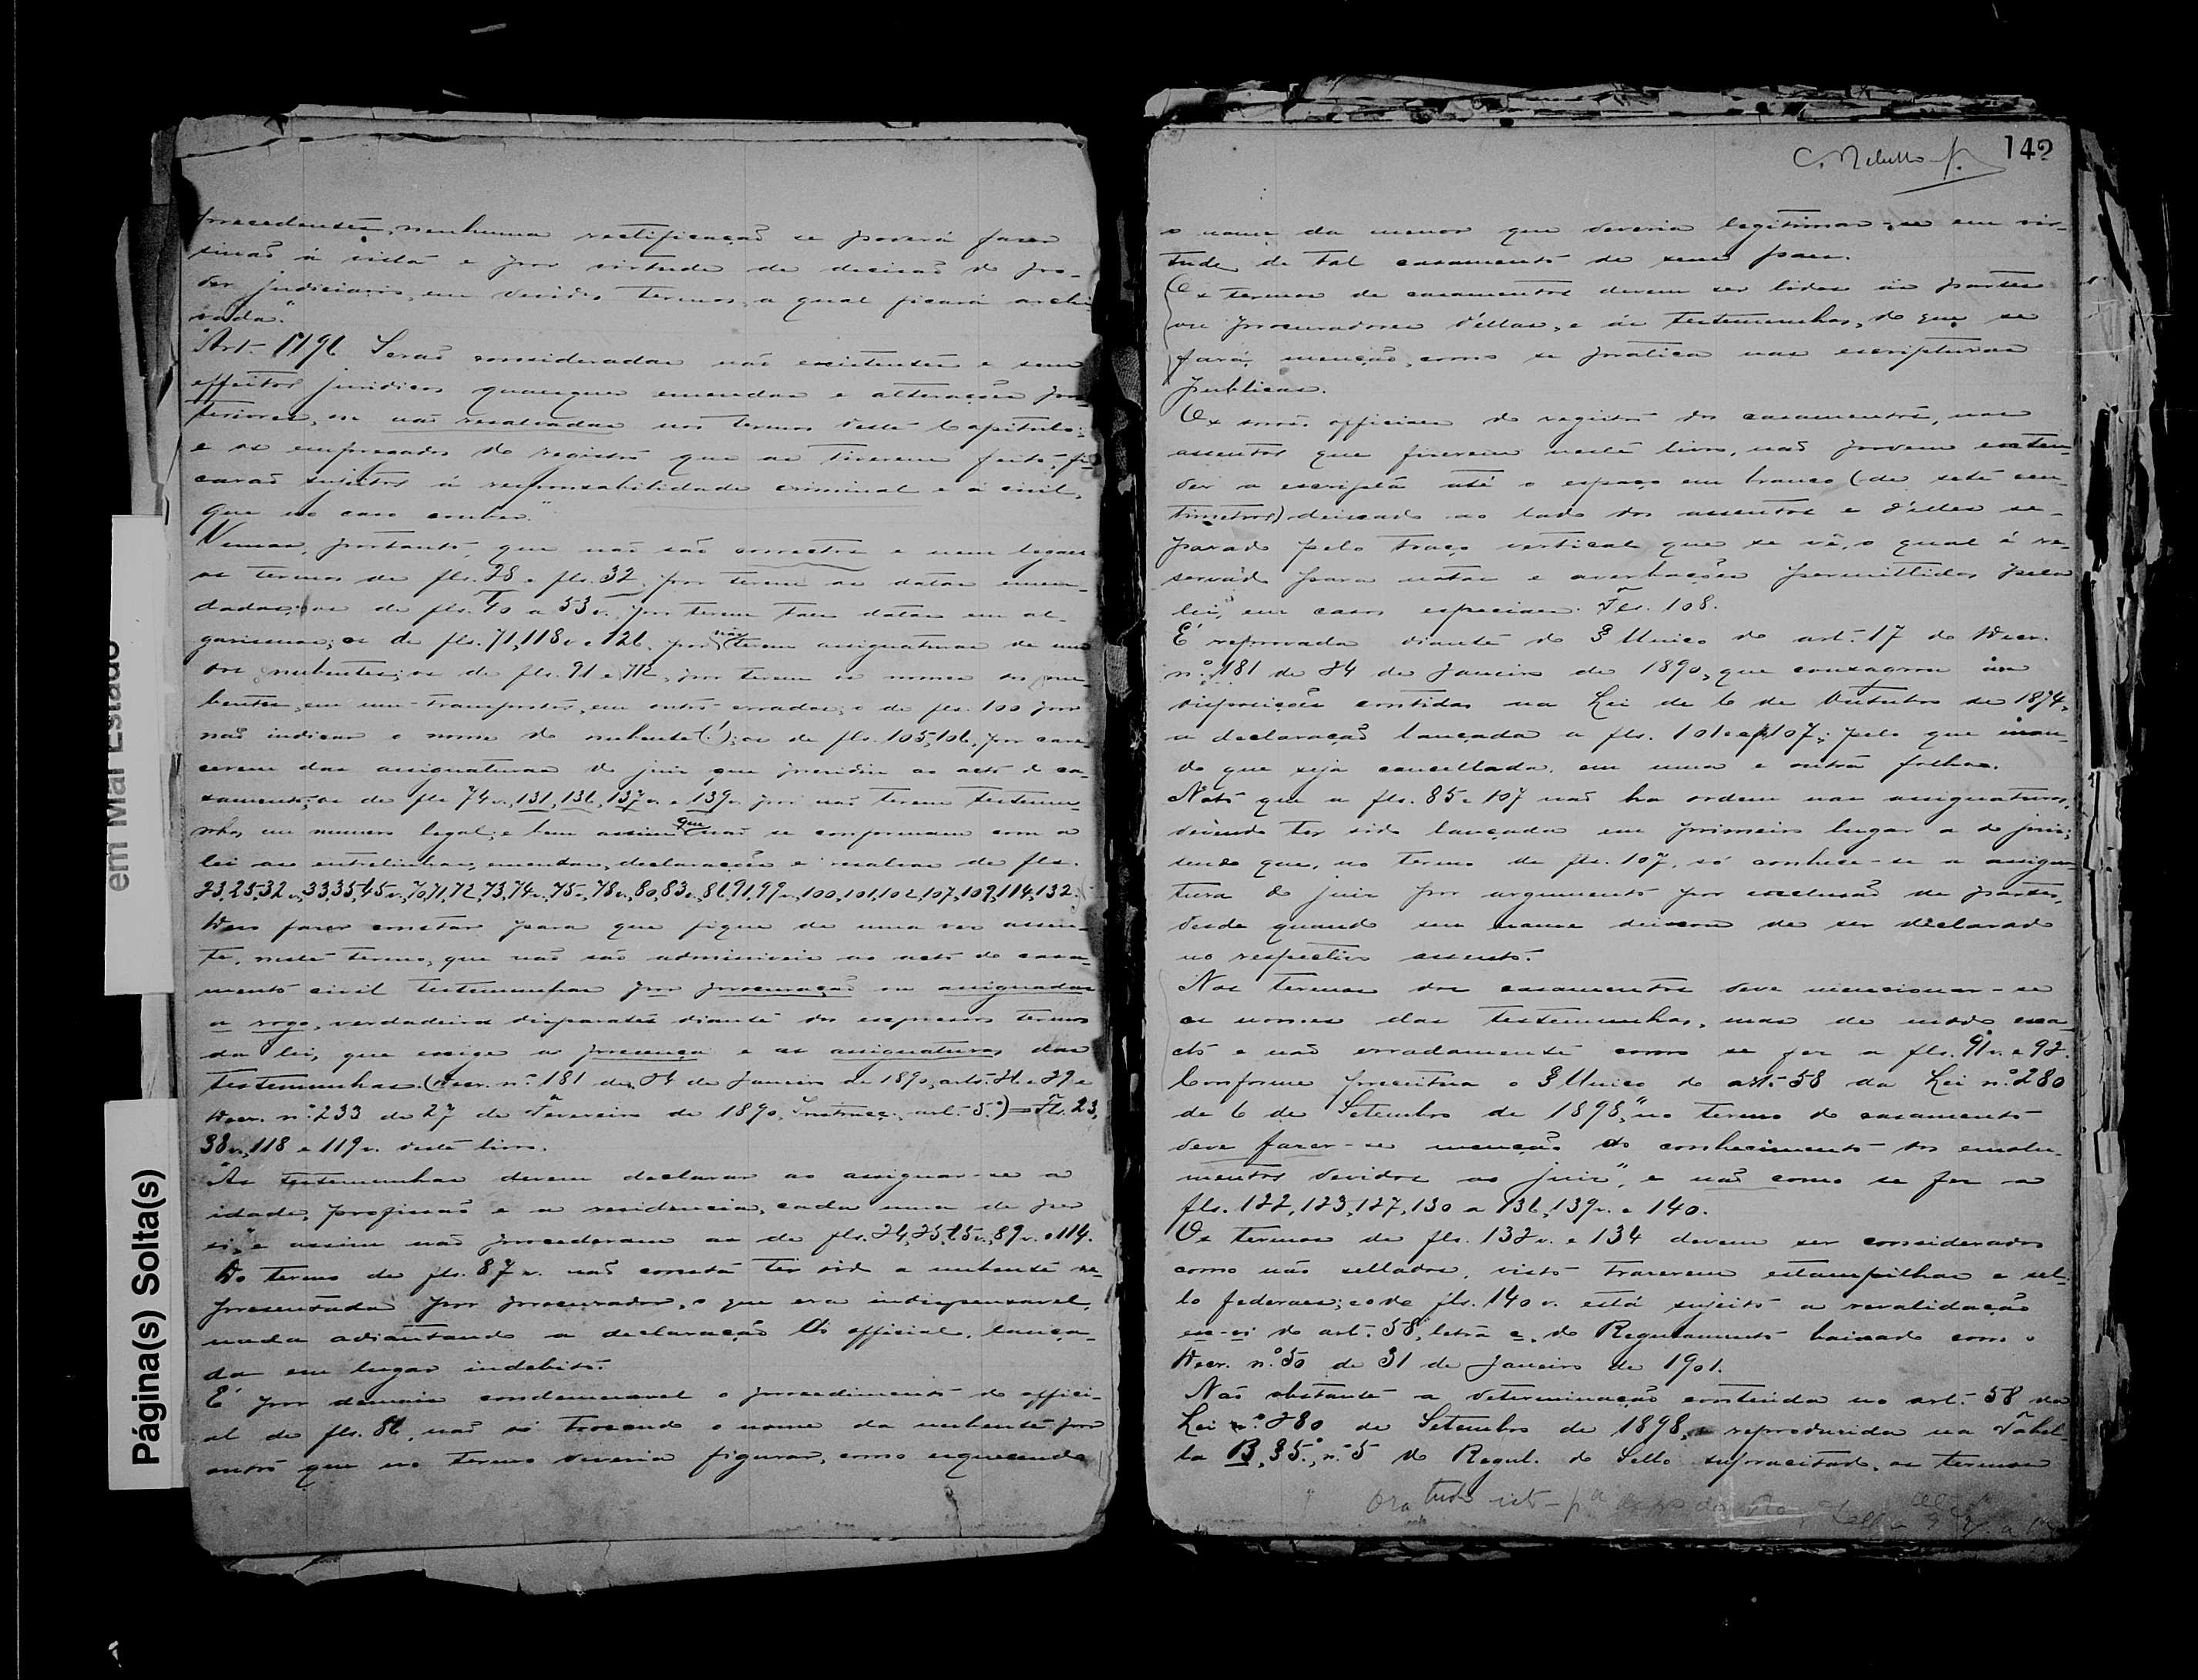 precedentes, nenhuma rectificação se poderá fazer
sinaõ á vista e por virtude de decisaõ do po-
der judiciario, em devidos termos, a qual ficará archi-
vada."
"Art. Seraõ consideradas naõ existentes e sem
effeitos juridicos quaesquer emendas e alterações pos-
teriores, ou naõ resalvadas nos termos deste Capitulo;
e os empregados do registro que as tiverem feito, fi-
caraõ sujeitos á responsabilidade criminal e á civil,
que no caso couber."
Vemos, portanto, que naõ saõ correctos e nem legaes
os termos de fls. 28 e fls. 32, por terem as datas emen-
dadas; os de fls. a 53v. por terem taes datas em al-
garismos; os de fls. 71, 118v. e 126, por não terem assignaturas de um
dos nubentes; os de fls. 91 e 112, por terem os nomes dos nu-
bentes, em um transpostos, em outro errados; o de fls. 100 por
naõ indicar o nome do nubente (!); os de fls. 105, 106, por care-
cerem das assignaturas do juiz que presidiu ao acto do ca-
samento; os de fls. 74v., 131, 136, 137v. e 139v. por naõ terem testemu-
nhas em numero legal; e bem assim que naõ se conformam com a
lei as entrelinhas, emendas, declarações e resalvas de fls.
23, 25, 32v., 33, 35, 45v., 70, 71, 72, 73, 74v., 75v., 78v., 80, 83v., 86, 91, 99v., 100, 101, 102, 107, 109, 114, 132.
Devo fazer constar para que fique de uma vez assen-
te, neste termo, que naõ saõ admissiveis no acto do casa-
mento civil testemunhas por procuraçaõ ou assignadas
a rogo, verdadeiros disparates diante dos expressos termos
da lei, que exige a presença e as assignaturas das
testemunhas. (Decr. nº 181 de 24 de Janeiro de 1890, arts. 26 e 29 e
Decr. nº 233 de 27 de Fevereiro de 1890, Instrucç. art. 5º.) = Fls. 23,
38v., 118 e 119v. deste livro.
"As testemunhas devem declarar ao assignar-se a
idade, profissaõ e a residencia, cada uma de per
si," e assim naõ procederam as de fls. 24, 25, 89v. e 114.
Do termo de fls. 87v. naõ consta ter sido a nubente re-
presentada por procurador, o que era indispensavel,
nada adiantando a declaraçaõ do official, lança-
da em lugar indebito.
É por demais condemnavel o procedimento do offici-
al de fls. 86, naõ só trocando o nome da nubente por
outro que no termo deveria figurar, como esquecendo
C. Rebello Jr.
142
o nome da menor que deveria legitimar-se em vir-
tude de tal casamento de seus paes.
Os termos de casamentos devem ser lidos ás partes
ou procuradores d'ellas, e ás testemunhas, do que se
fará menção, como se pratica nas escripturas
publicas.
Os snrs. officiaes do registro dos casamentos, nos
assentos que fizerem neste livro, naõ podem exten-
der a escripta até o espaço em branco (de sete cen-
timetros) deixado ao lado dos assentos e d'elles se-
parado pelo traço vertical que se vê, o qual é re-
servado para notas e averbações permittidas pela
lei, em casos especiaes. Fls. 108.
É reprovada diante do § Unico do art. 17 do Decr.
nº 181 de 24 de Janeiro de 1890, que consagrou as
disposições contidas na Lei de 6 de Outubro de 1874,
a declaraçaõ lançada a fls. 101 e a 107; pelo que man-
do que seja cancellada, em uma e outra folhas.
Noto que a fls. 85 e 107 naõ ha ordem nas assignaturas,
devendo ter sido lançada em primeiro lugar a do juiz;
sendo que, no termo de fls. 107, só conhece-se a assigna-
tura do juiz por argumento por exclusaõ de partes,
desde quando seu nome deixou de ser declarado
no respectivo assento.
Nos termos dos casamentos deve mencionar-se
os nomes das testemunhas, mas de modo exa-
cto e naõ erradamente como se fez a fls. 91v. e 92.
Conforme preceitua o § Unico do art. 58 da Lei nº 280
de 6 de Setembro de 1898, "no termo do casamento
deve fazer-se menção do conhecimento dos emolu-
mentos devidos ao juiz", e naõ como se fez a
fls. 122, 123, 127, 130 a 136, 139v. e 140.
Os termos de fls. 132v. e 134 devem ser considerados
como não sellados, visto trazerem estampilhas e sel-
lo federaes; e o de fls. 140v. está sujeito a revalidação
ex-vi do art. 58, letra c, do Regulamento baixado com o
Decr. nº 50 de 31 de Janeiro de 1901.
Naõ obstante a determinação contida no art. 58 da
Lei nº 280 de Setembro de 1898, e reproduzida na Tabel-
la B, § 5º, n. 5 do Regul. do Sello supracitado, os termos
Ora tudo isto - pª
em Mau Estado
Página(s) Solta(s)